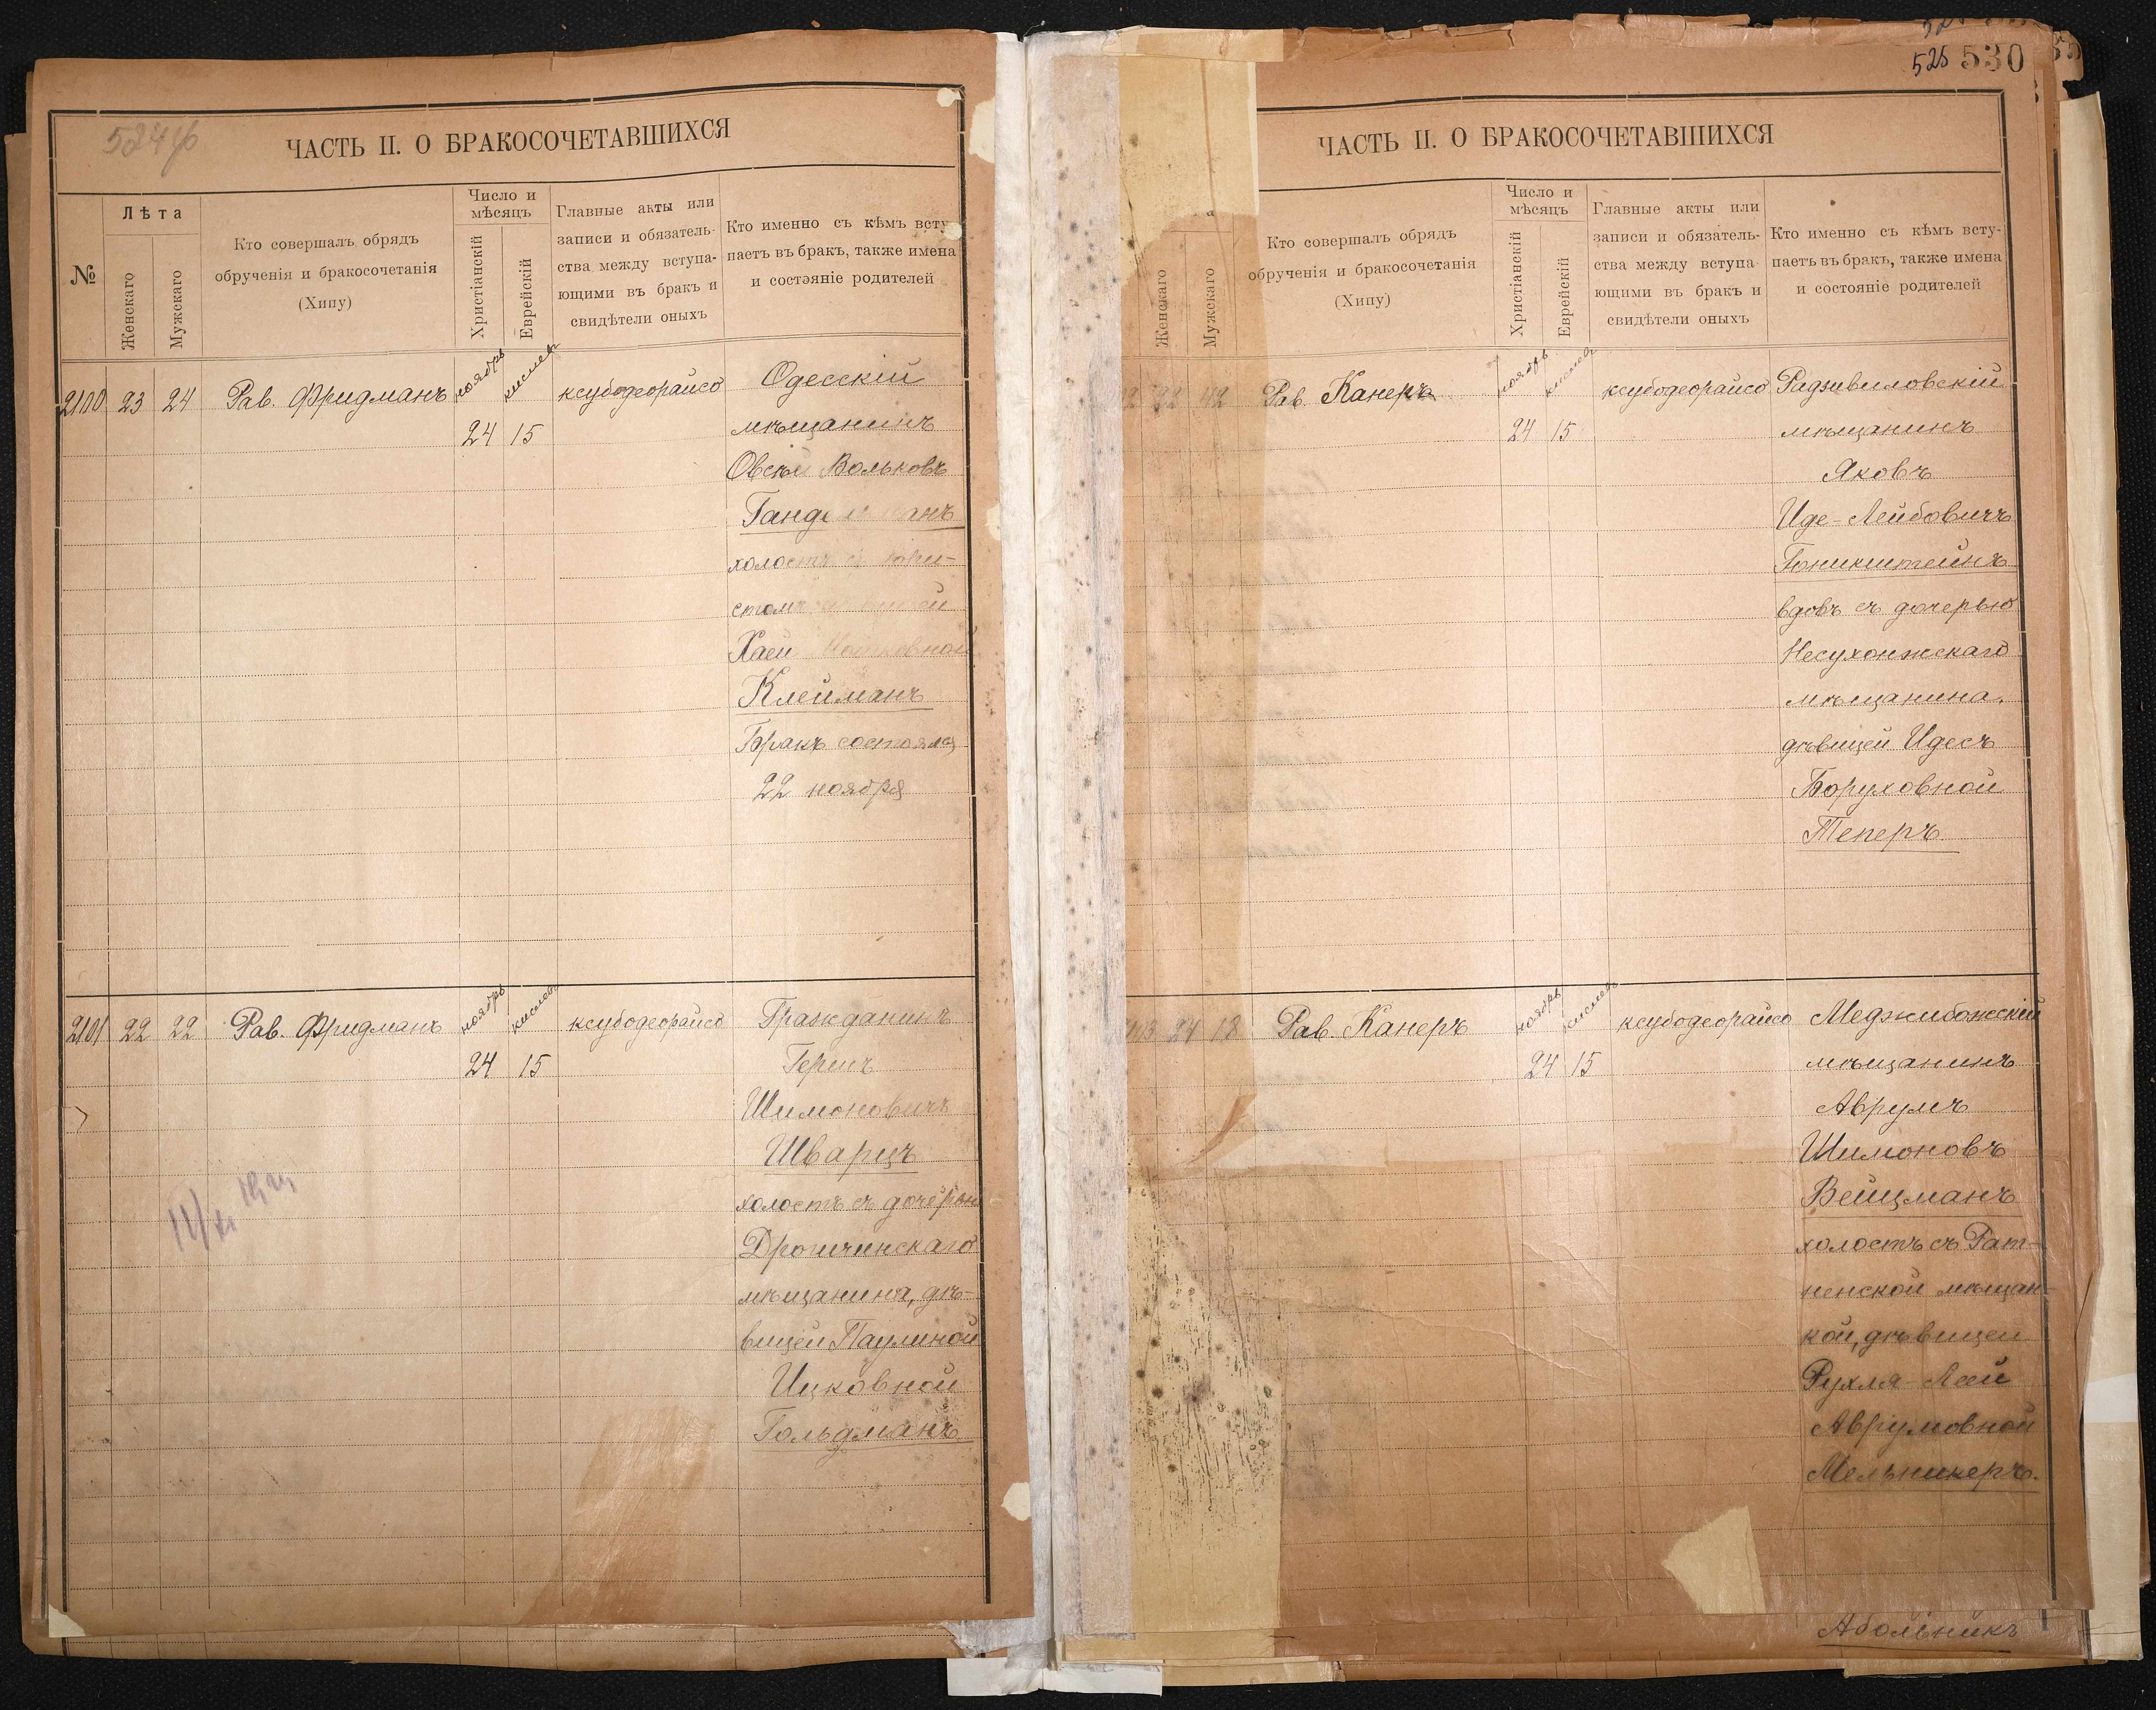 524
ЧАСТЬ II. О БРАКОСОЧЕТАВШИХСЯ
№
Лѣта
Женскаго
Мужскаго
Кто совершалъ обрядъ
обрученія и бракосочетанія
(Хипу)
Число и
мѣсяцъ
Христіанскій
Еврейскій
Главные акты или
записи и обязатель-
ства между вступа-
ющими въ бракъ и
свидѣтели оныхъ
Кто именно съ кѣмъ всту
паетъ въ бракъ, также имена
и состояніе родителей
2100 23 24 Рав. Фридманъ ноябрь кислев ксубодеорайсо Одесскій
24 15 мѣщанинъ
Овсѣй Вольковъ
холостъ
Хаей
Клейманъ
Бракъ состоялся
22 ноября
2101 22 22 Рав. Фридманъ ноябрь кислев ксубодеорайсо Гражданинъ
24 15 Гершъ
Шимоновичъ
Шварцъ
холостъ съ дочерью
Дрогичинскаго
мѣщанина, дѣ-
вицей Паулиной
Ицковной
Гольдманъ
525 530
ЧАСТЬ II. О БРАКОСОЧЕТАВШИХСЯ
Женскаго
Мужскаго
Кто совершалъ обрядъ
обрученія и бракосочетанія
(Хипу)
Число и
мѣсяцъ
Христіанскій
Еврейскій
Главные акты или
записи и обязатель-
ства между вступа
ющими въ бракъ и
свидѣтели оныхъ
Кто именно съ кѣмъ всту-
паетъ въ бракъ, также имена
и состояніе родителей
2 22 42 Рав. Канеръ ноябрь кислев ксубодеорайсо Радзивиловскій
24 15 мѣщанинъ
Яковъ
Иде-Лейбовичъ
вдовъ съ дочерью
Несухоижскаго
мѣщанина,
дѣвицей Идесъ
Боруховной
Теперъ
24 18 Рав. Канеръ ноябрь кислев ксубодеорайсо Меджибожскій
24 15 мѣщанинъ
Аврумъ
Шимоновъ
Вейцманъ
холостъ съ Рат-
ненской мѣщан-
кой, дѣвицей
Рухля-Леей
Аврумовной
Мельникеръ.
Абольникъ